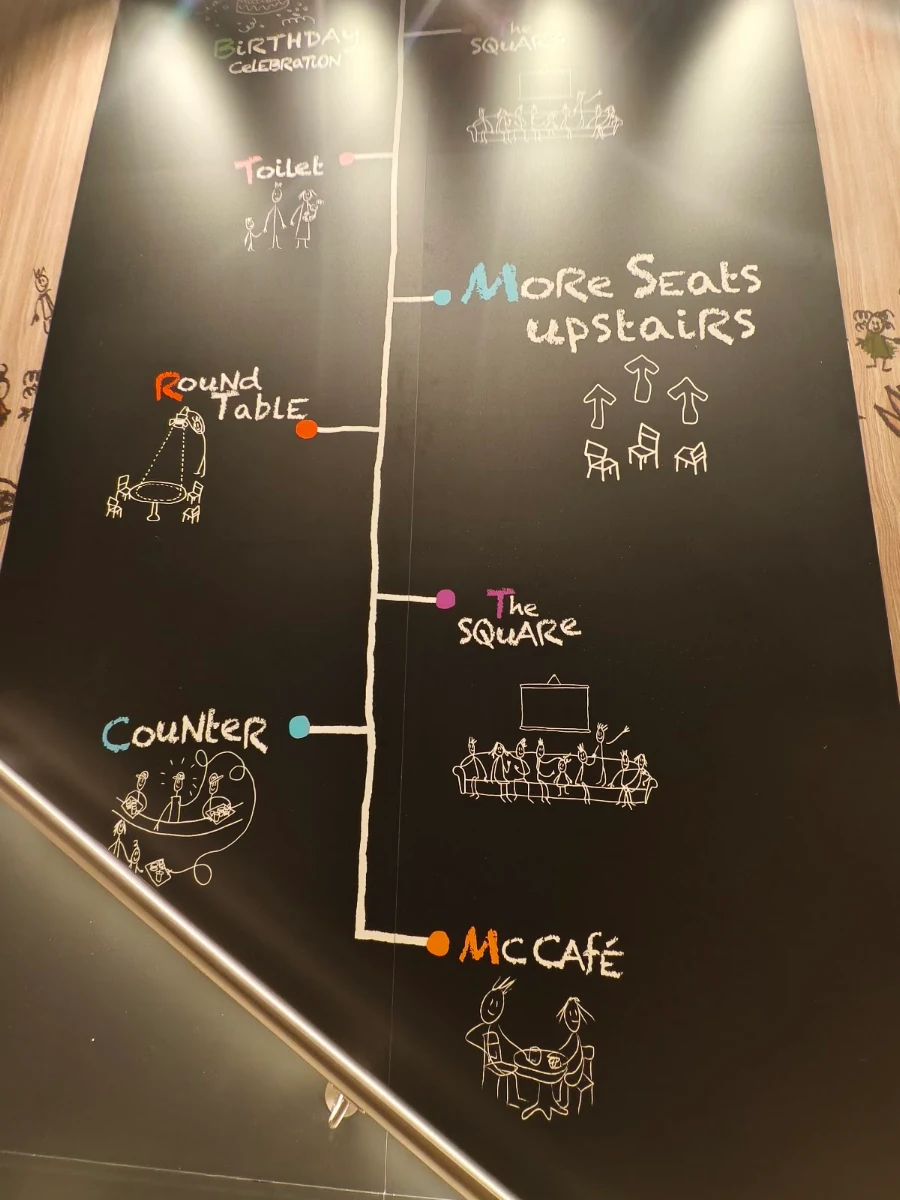 BiRTHDAY
CeLEBRATiON
The
SQuARe
Toilet
MoRe SEats
upstaiRS
RouNd
TabLE
The
SQuARe
CouNteR
McCAfÉ